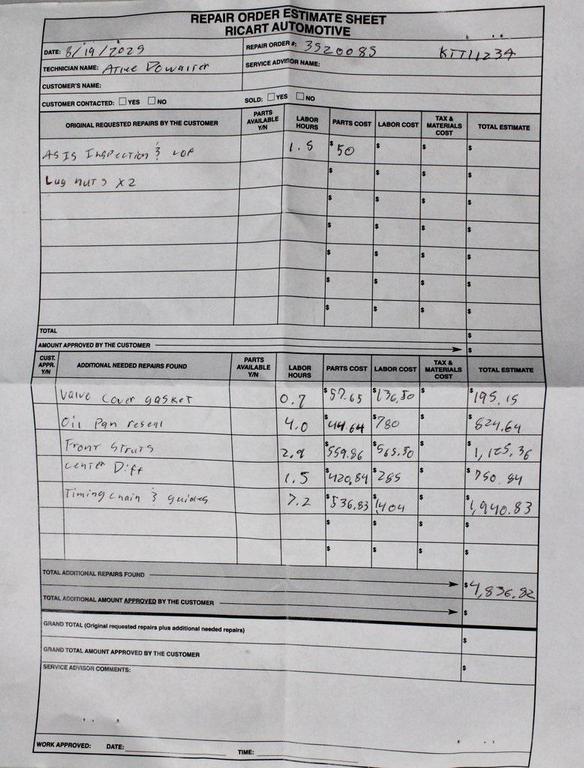 REPAIR ORDER ESTIMATE SHEET
RICART AUTOMOTIVE
DATE: 8/19/2025 REPAIR ORDER #: 3520085 KTT11234
TECHNICIAN NAME: SERVICE ADVISOR NAME:
CUSTOMER'S NAME:
CUSTOMER CONTACTED: YES NO SOLD: YES NO
ORIGINAL REQUESTED REPAIRS BY THE CUSTOMER PARTS AVAILABLE Y/N LABOR HOURS PARTS COST LABOR COST TAX & MATERIALS COST TOTAL ESTIMATE
AS IS Inspection & LOF 1.5 $50 $ $ $
Lug nuts x2 $ $ $ $
$ $ $ $
$ $ $ $
$ $ $ $
$ $ $ $
$ $ $ $
TOTAL $
AMOUNT APPROVED BY THE CUSTOMER $
CUST. APPR. Y/N ADDITIONAL NEEDED REPAIRS FOUND PARTS AVAILABLE Y/N LABOR HOURS PARTS COST LABOR COST TAX & MATERIALS COST TOTAL ESTIMATE
Valve cover gasket 0.7 $57.65 $136.50 $ $195.15
Oil Pan reseal 4.0 $44.64 $780 $ $824.64
Front Struts 2.9 $559.86 $565.50 $ $1,125.36
Center Diff 1.5 $420.84 $285 $ $750.84
Timing chain & guides 7.2 $536.83 $1404 $ $1,940.83
$ $ $ $
$ $ $ $
TOTAL ADDITIONAL REPAIRS FOUND $4,836.82
TOTAL ADDITIONAL AMOUNT APPROVED BY THE CUSTOMER $
GRAND TOTAL (Original requested repairs plus additional needed repairs) $
GRAND TOTAL AMOUNT APPROVED BY THE CUSTOMER $
SERVICE ADVISOR COMMENTS:
WORK APPROVED: DATE: TIME: